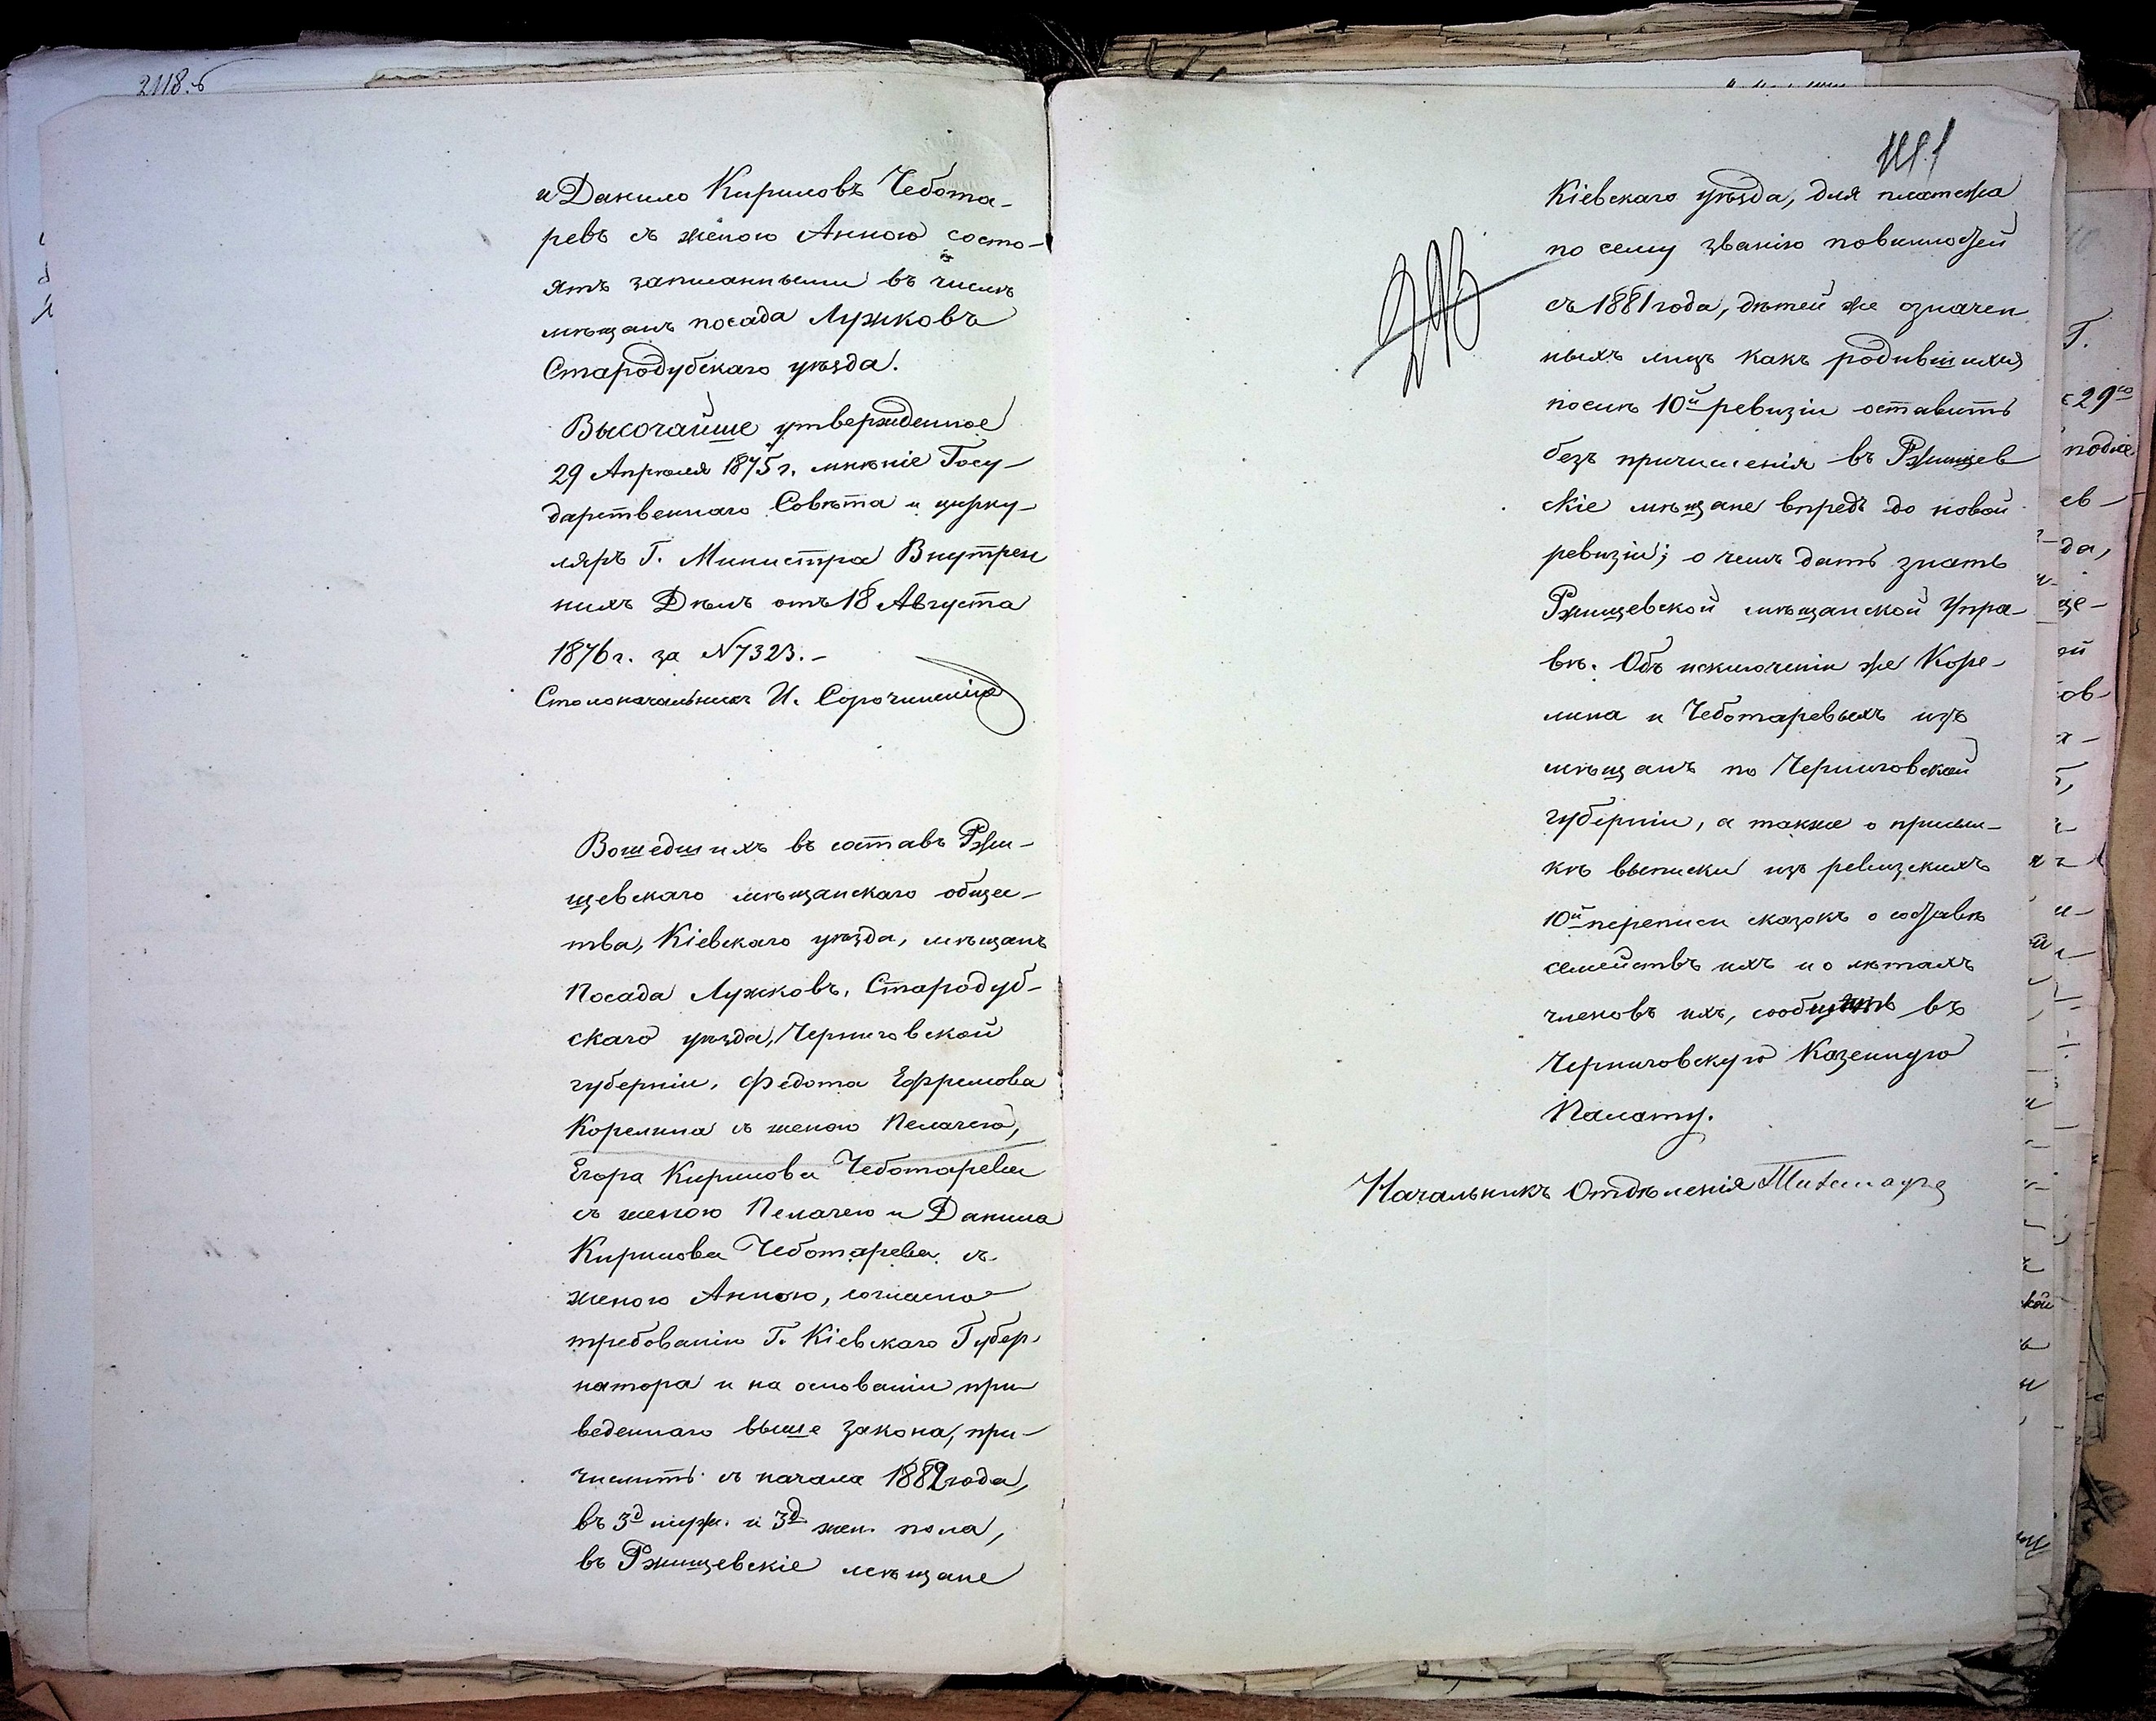 2118.б
и Данило Кириловъ Чебота-
ревъ съ женою Анною состо-
ятъ записанными въ числѣ
мѣщанъ посада Лужковъ
Стародубскаго уѣзда.
Высочайше утвержденное
29 Апрѣля 1875 г. мнѣніе Госу-
дарственнаго Совѣта и цирку-
ляръ Г. Министра Внутрен
нихъ Дѣлъ отъ 18 Августа
1876 г. за № 7323.-
Столоначальникъ И. Сорочинскій
Вошедшихъ въ составъ Ржи-
щевскаго мѣщанскаго общес-
тва, Кіевскаго уѣзда, мѣщанъ
Посада Лужковъ, Стародуб-
скаго уѣзда, Черниговской
губерніи, Федота Ефремова
Корелина съ женою Пелагею,
Егора Кирилова Чеботарева
съ женою Пелагею и Данила
Кирилова Чеботарева съ
женою Анною, согласно
требованію Г. Кіевскаго Губер-
натора и на основаніи при
веденнаго выше закона, при-
числить съ начала 1882 года,
въ 3д муж. и 3д жен. пола,
въ Ржищевскіе мѣщане
Кіевскаго уѣзда, для платежа
по сему званію повинностей
съ 1881 года, дѣтей же означен
ныхъ лицъ какъ родившихся
послѣ 10й ревизіи оставить
безъ причисленія въ Ржищев
скіе мѣщане впредь до новой
ревизіи; о чемъ дать знать
Ржищевской мѣщанской Упра-
вѣ. Объ исключеніи же Коре-
лина и Чеботаревыхъ изъ
мѣщанъ по Черниговской
губерніи, а также о присыл-
кѣ выписки изъ ревизскихъ
10й переписи сказокъ о составѣ
семействъ ихъ и о лѣтахъ
членовъ ихъ, сообщить въ
Черниговскую Казенную
Палату.
Начальникъ Отдѣленія